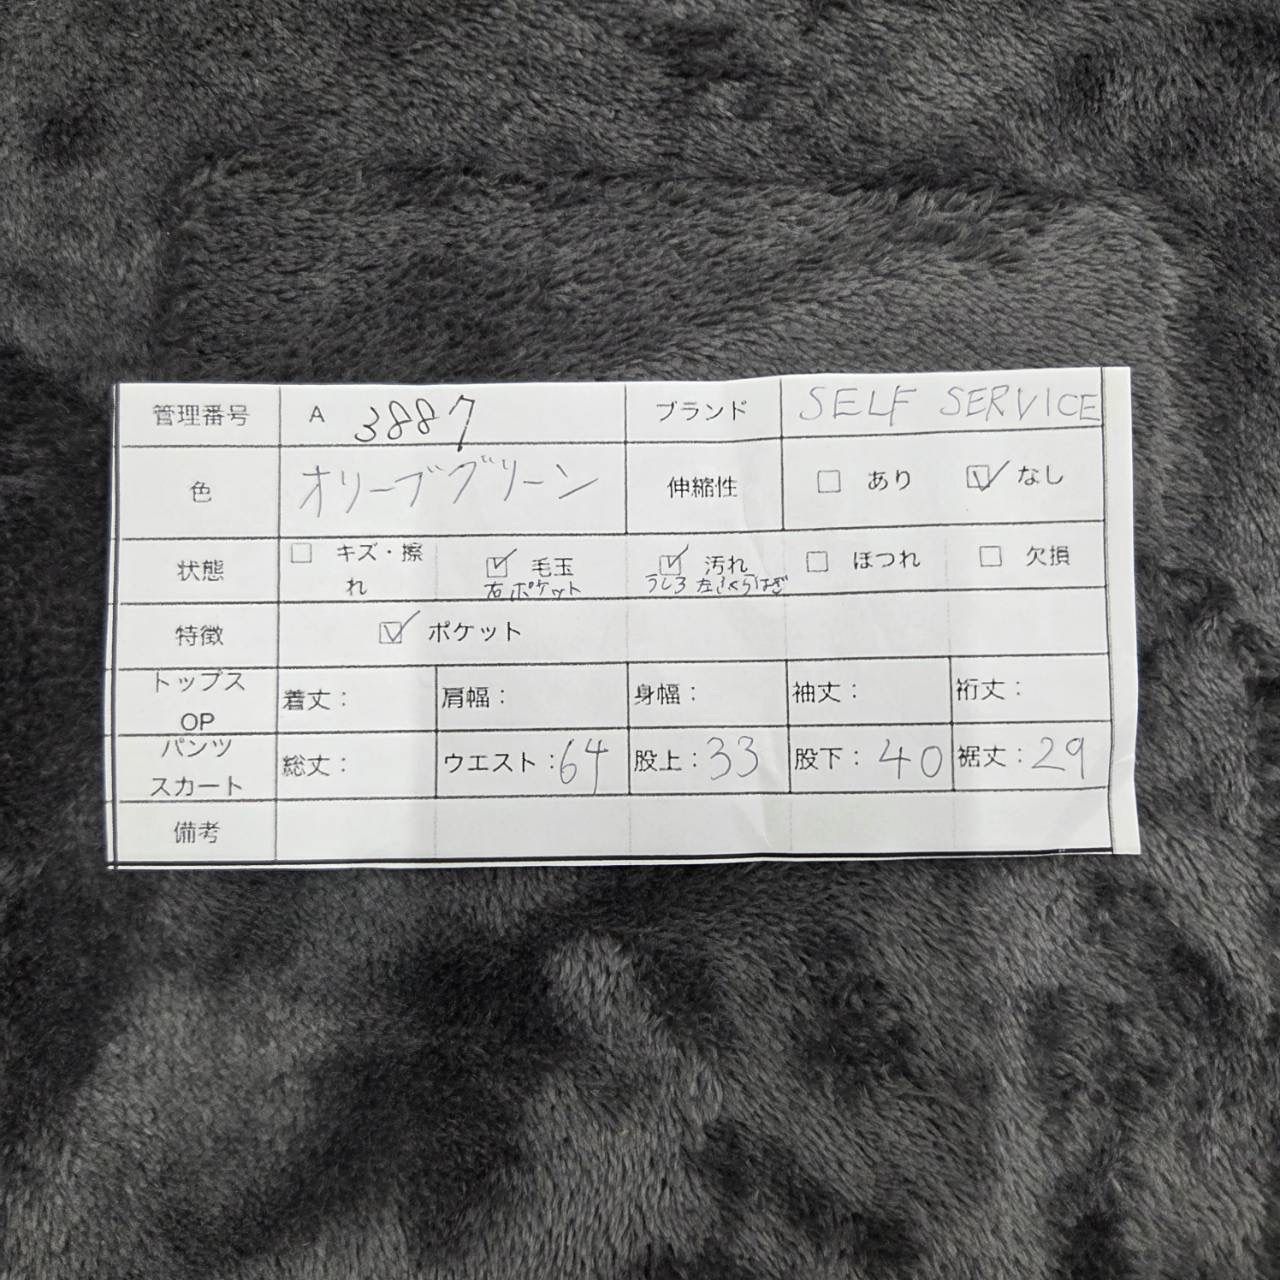 管理番号 A 3887 ブランド SELF SERVICE
色 オリーブグリーン 伸縮性 ☐ あり ☑ なし
状態 ☐ キズ・擦れ ☑ 毛玉 右ポケット ☑ 汚れ うしろ 左ふくらはぎ ☐ ほつれ ☐ 欠損
特徴 ☑ ポケット
トップス OP 着丈： 肩幅： 身幅： 袖丈： 裄丈：
パンツ スカート 総丈： ウエスト：64 股上：33 股下：40 裾丈：29
備考